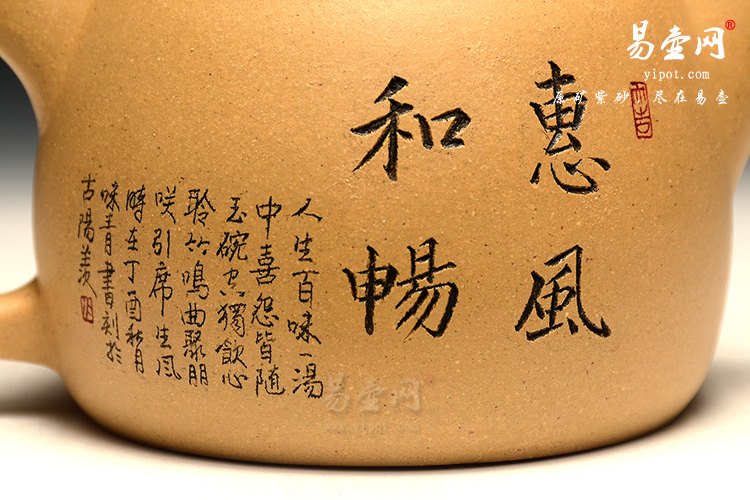 易壶网®
yipot.com
原矿紫砂,尽在易壶
惠風
和暢
人生百味一湯
中喜怨皆隨
玉碗空獨飲心
聆竹鳴曲聚朋
咲引席生風
時在丁酉秋月
味青書刻於
古陽羨
易壶网
www.yipot.com